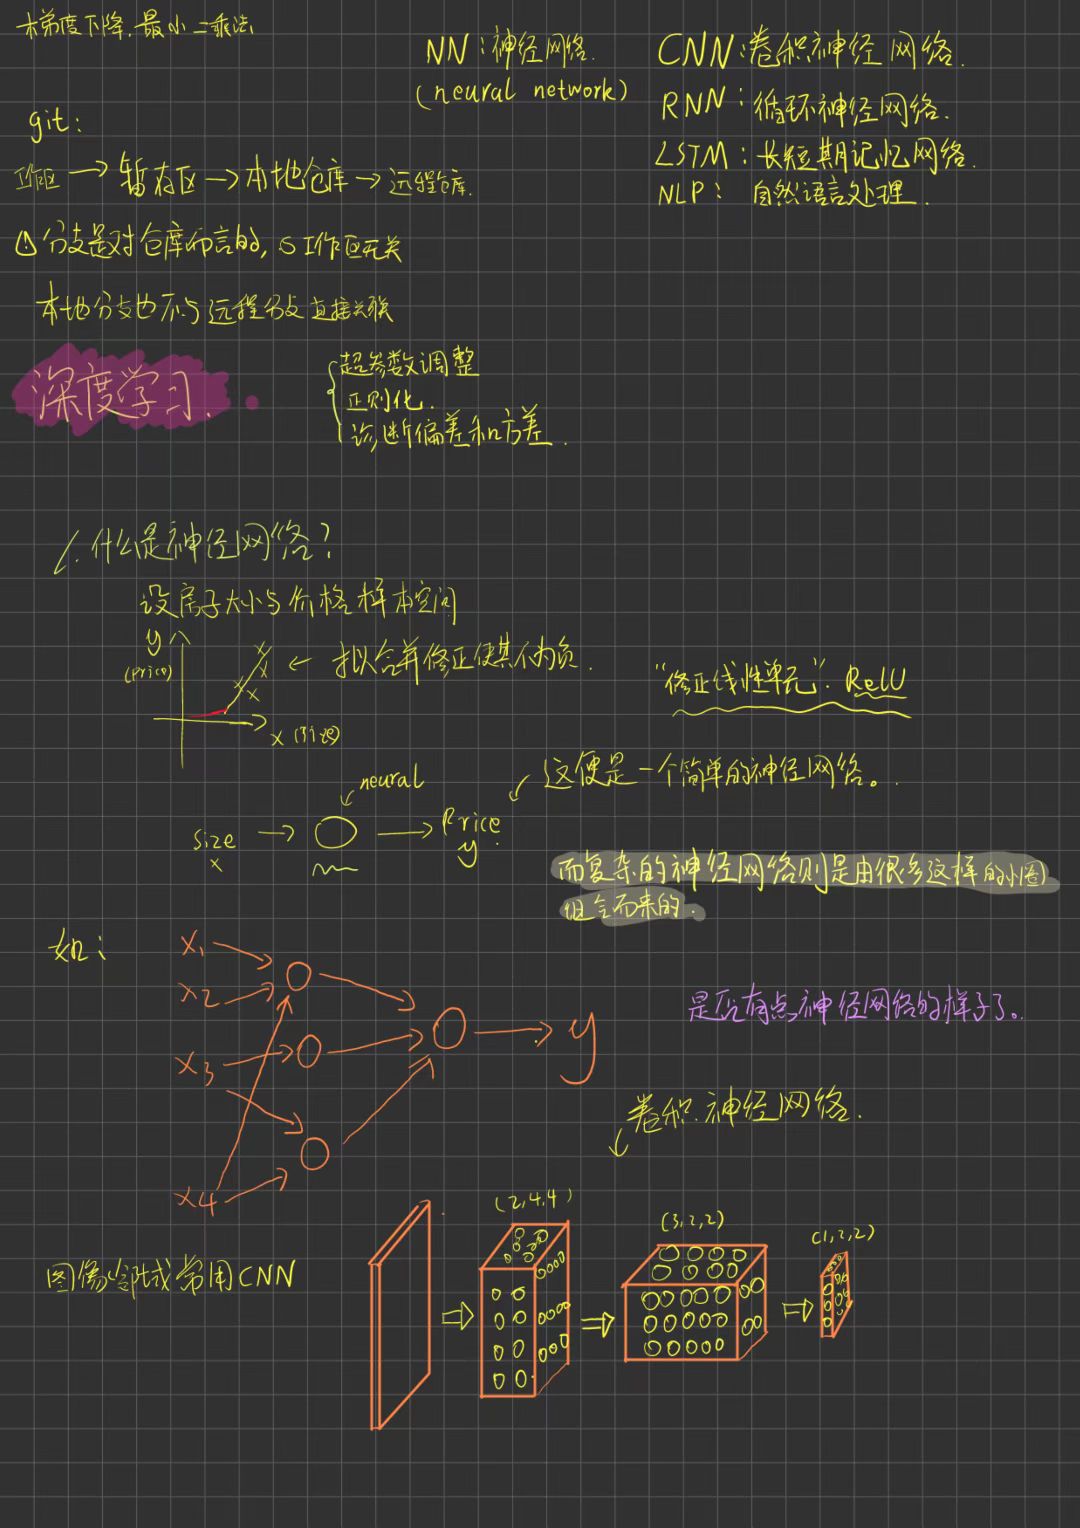 梯度下降.最小二乘法
NN：神经网络.
(neural network)
CNN：卷积神经网络.
RNN：循环神经网络.
LSTM：长短期记忆网络.
NLP：自然语言处理.
git：
工作区→暂存区→本地仓库→远程仓库.
① 分支是对仓库而言的，与工作区无关
本地分支也不与远程分支直接关联
深度学习.
超参数调整
正则化.
诊断偏差和方差.
1.什么是神经网络？
设房子大小与价格样本空间
y
(price)
← 拟合并修正使其不为负.
x (size)
"修正线性单元". RelU
neural
size → → Price
x y
这便是一个简单的神经网络。
而复杂的神经网络则是由很多这样的小圈
组合而来的.
如：
x1
x2
x3
x4
y
是否有点神经网络的样子了。
卷积神经网络.
(2,4,4)
(3,2,2)
(1,2,2)
图像领域常用CNN